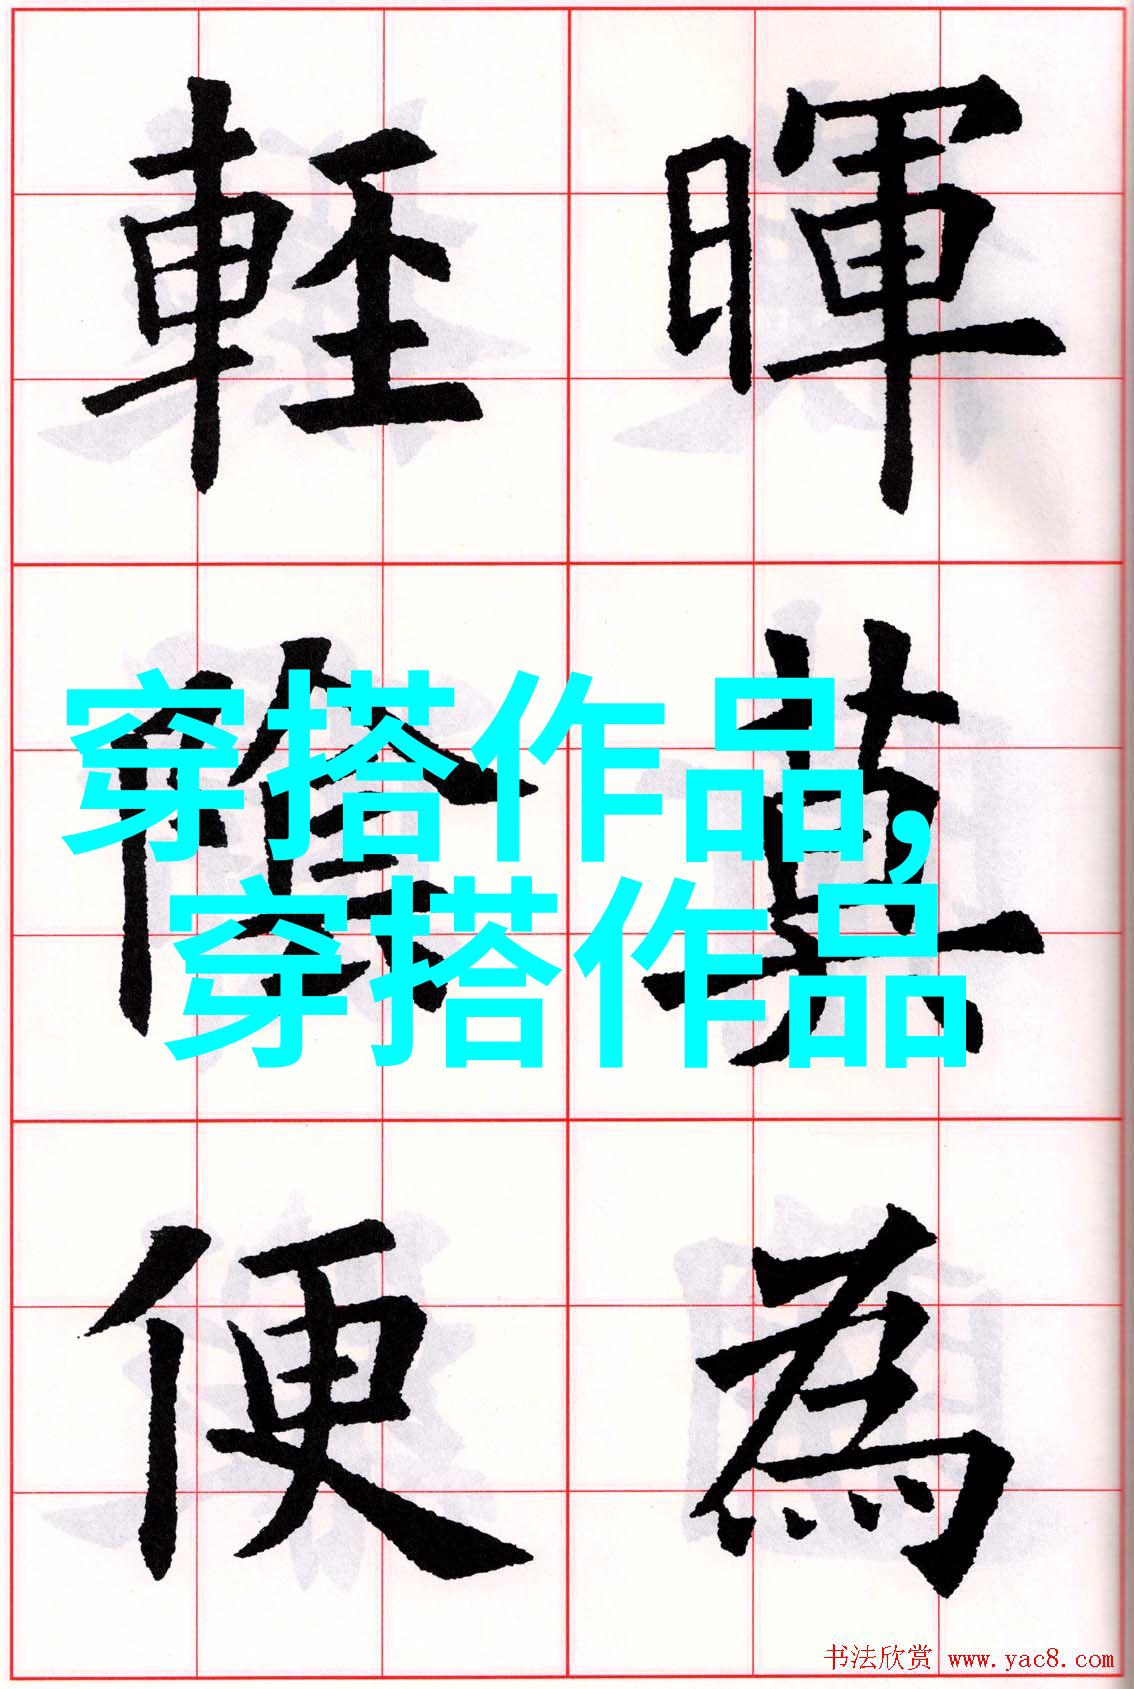 暉莫為
輕陰便
穿搭作品,
穿搭作品
书法欣赏 www.yac8.com